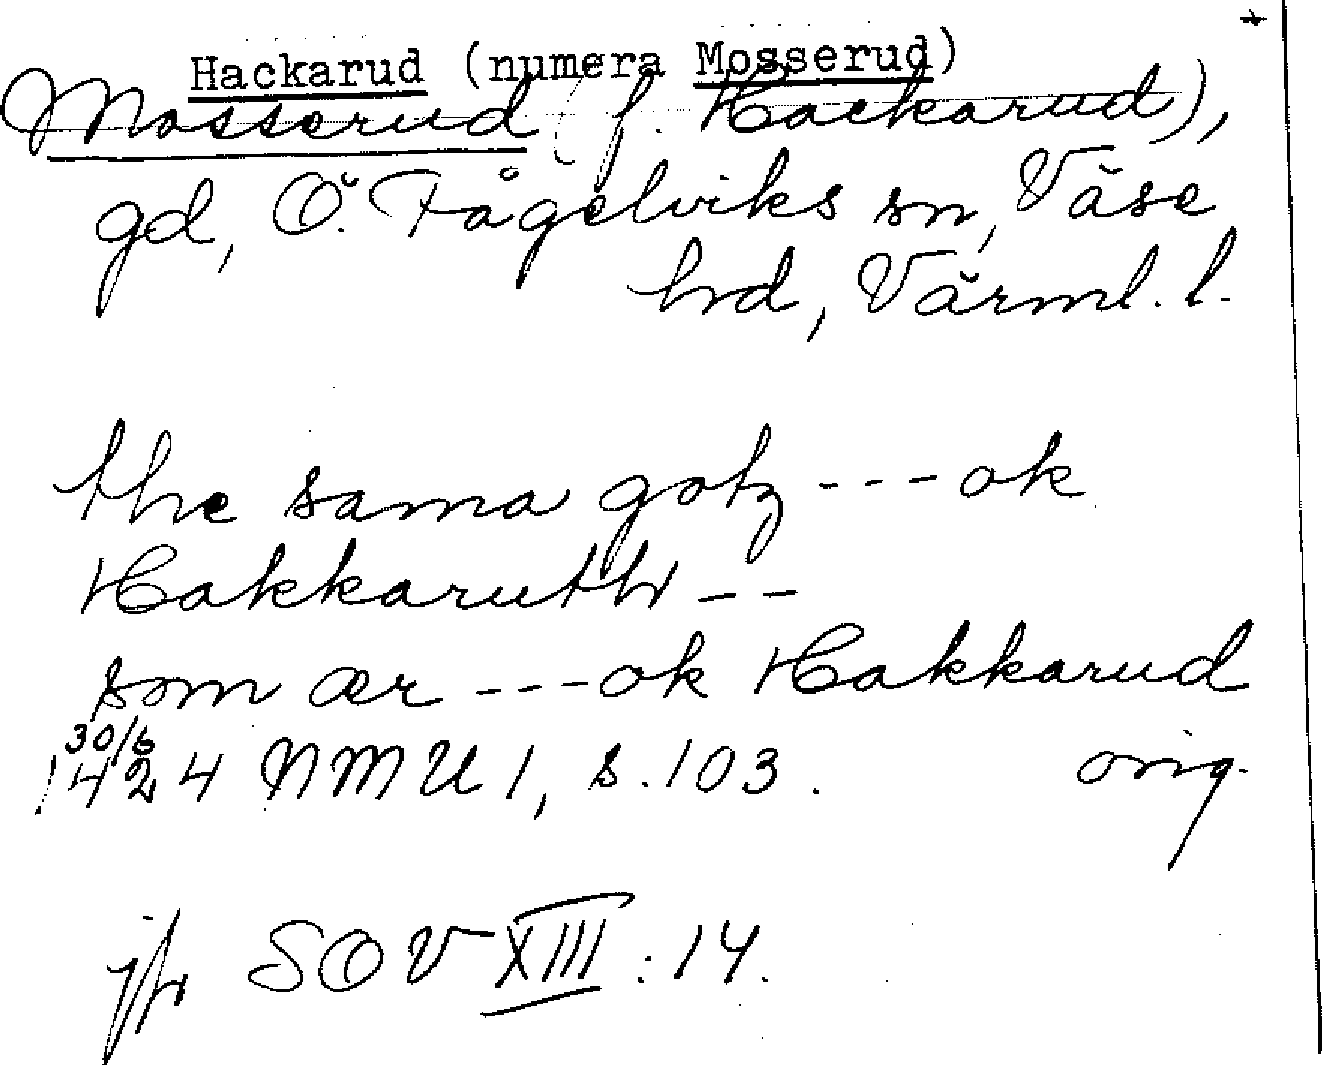 +
Hackarud (numera Mosserud)
Mosserud (f. Hackarud),
gd, Ö. Fågelviks sn, Väse
hd, Värml. l.
the sama gotz --- ok
Hakkaruth --
som ær --- ok Hakkarud
30/6
1424 NMU 1, s. 103. orig.
jfr SOV XIII: 14.